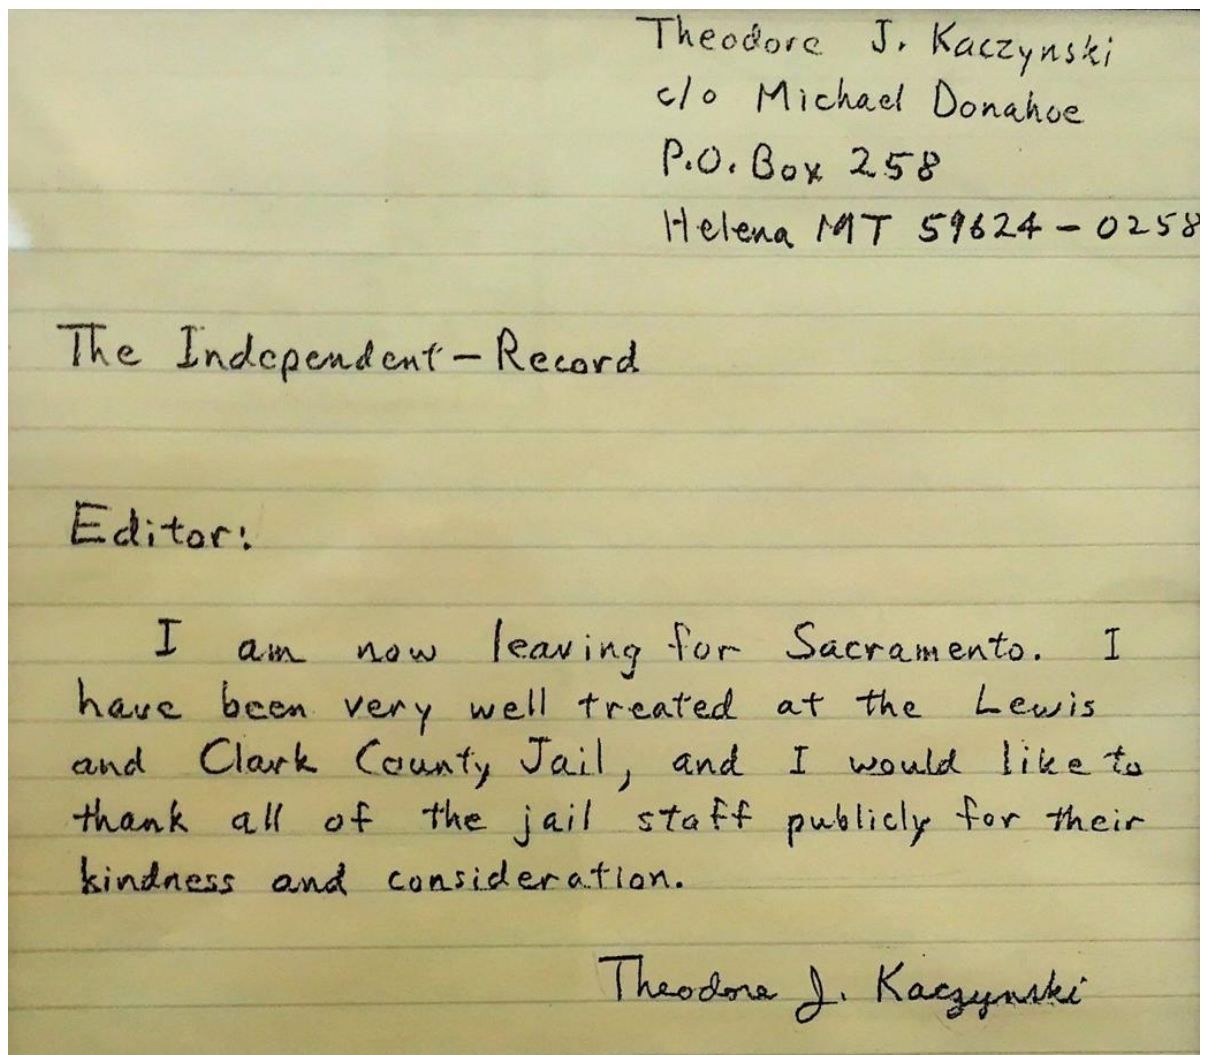 Theodore J. Kaczynski
c/o Michael Donahoe
P.O. Box 258
Helena MT 59624-0258
The Independent-Record
Editor:
I am now leaving for Sacramento. I
have been very well treated at the Lewis
and Clark County Jail, and I would like to
thank all of the jail staff publicly for their
kindness and consideration.
Theodore J. Kaczynski